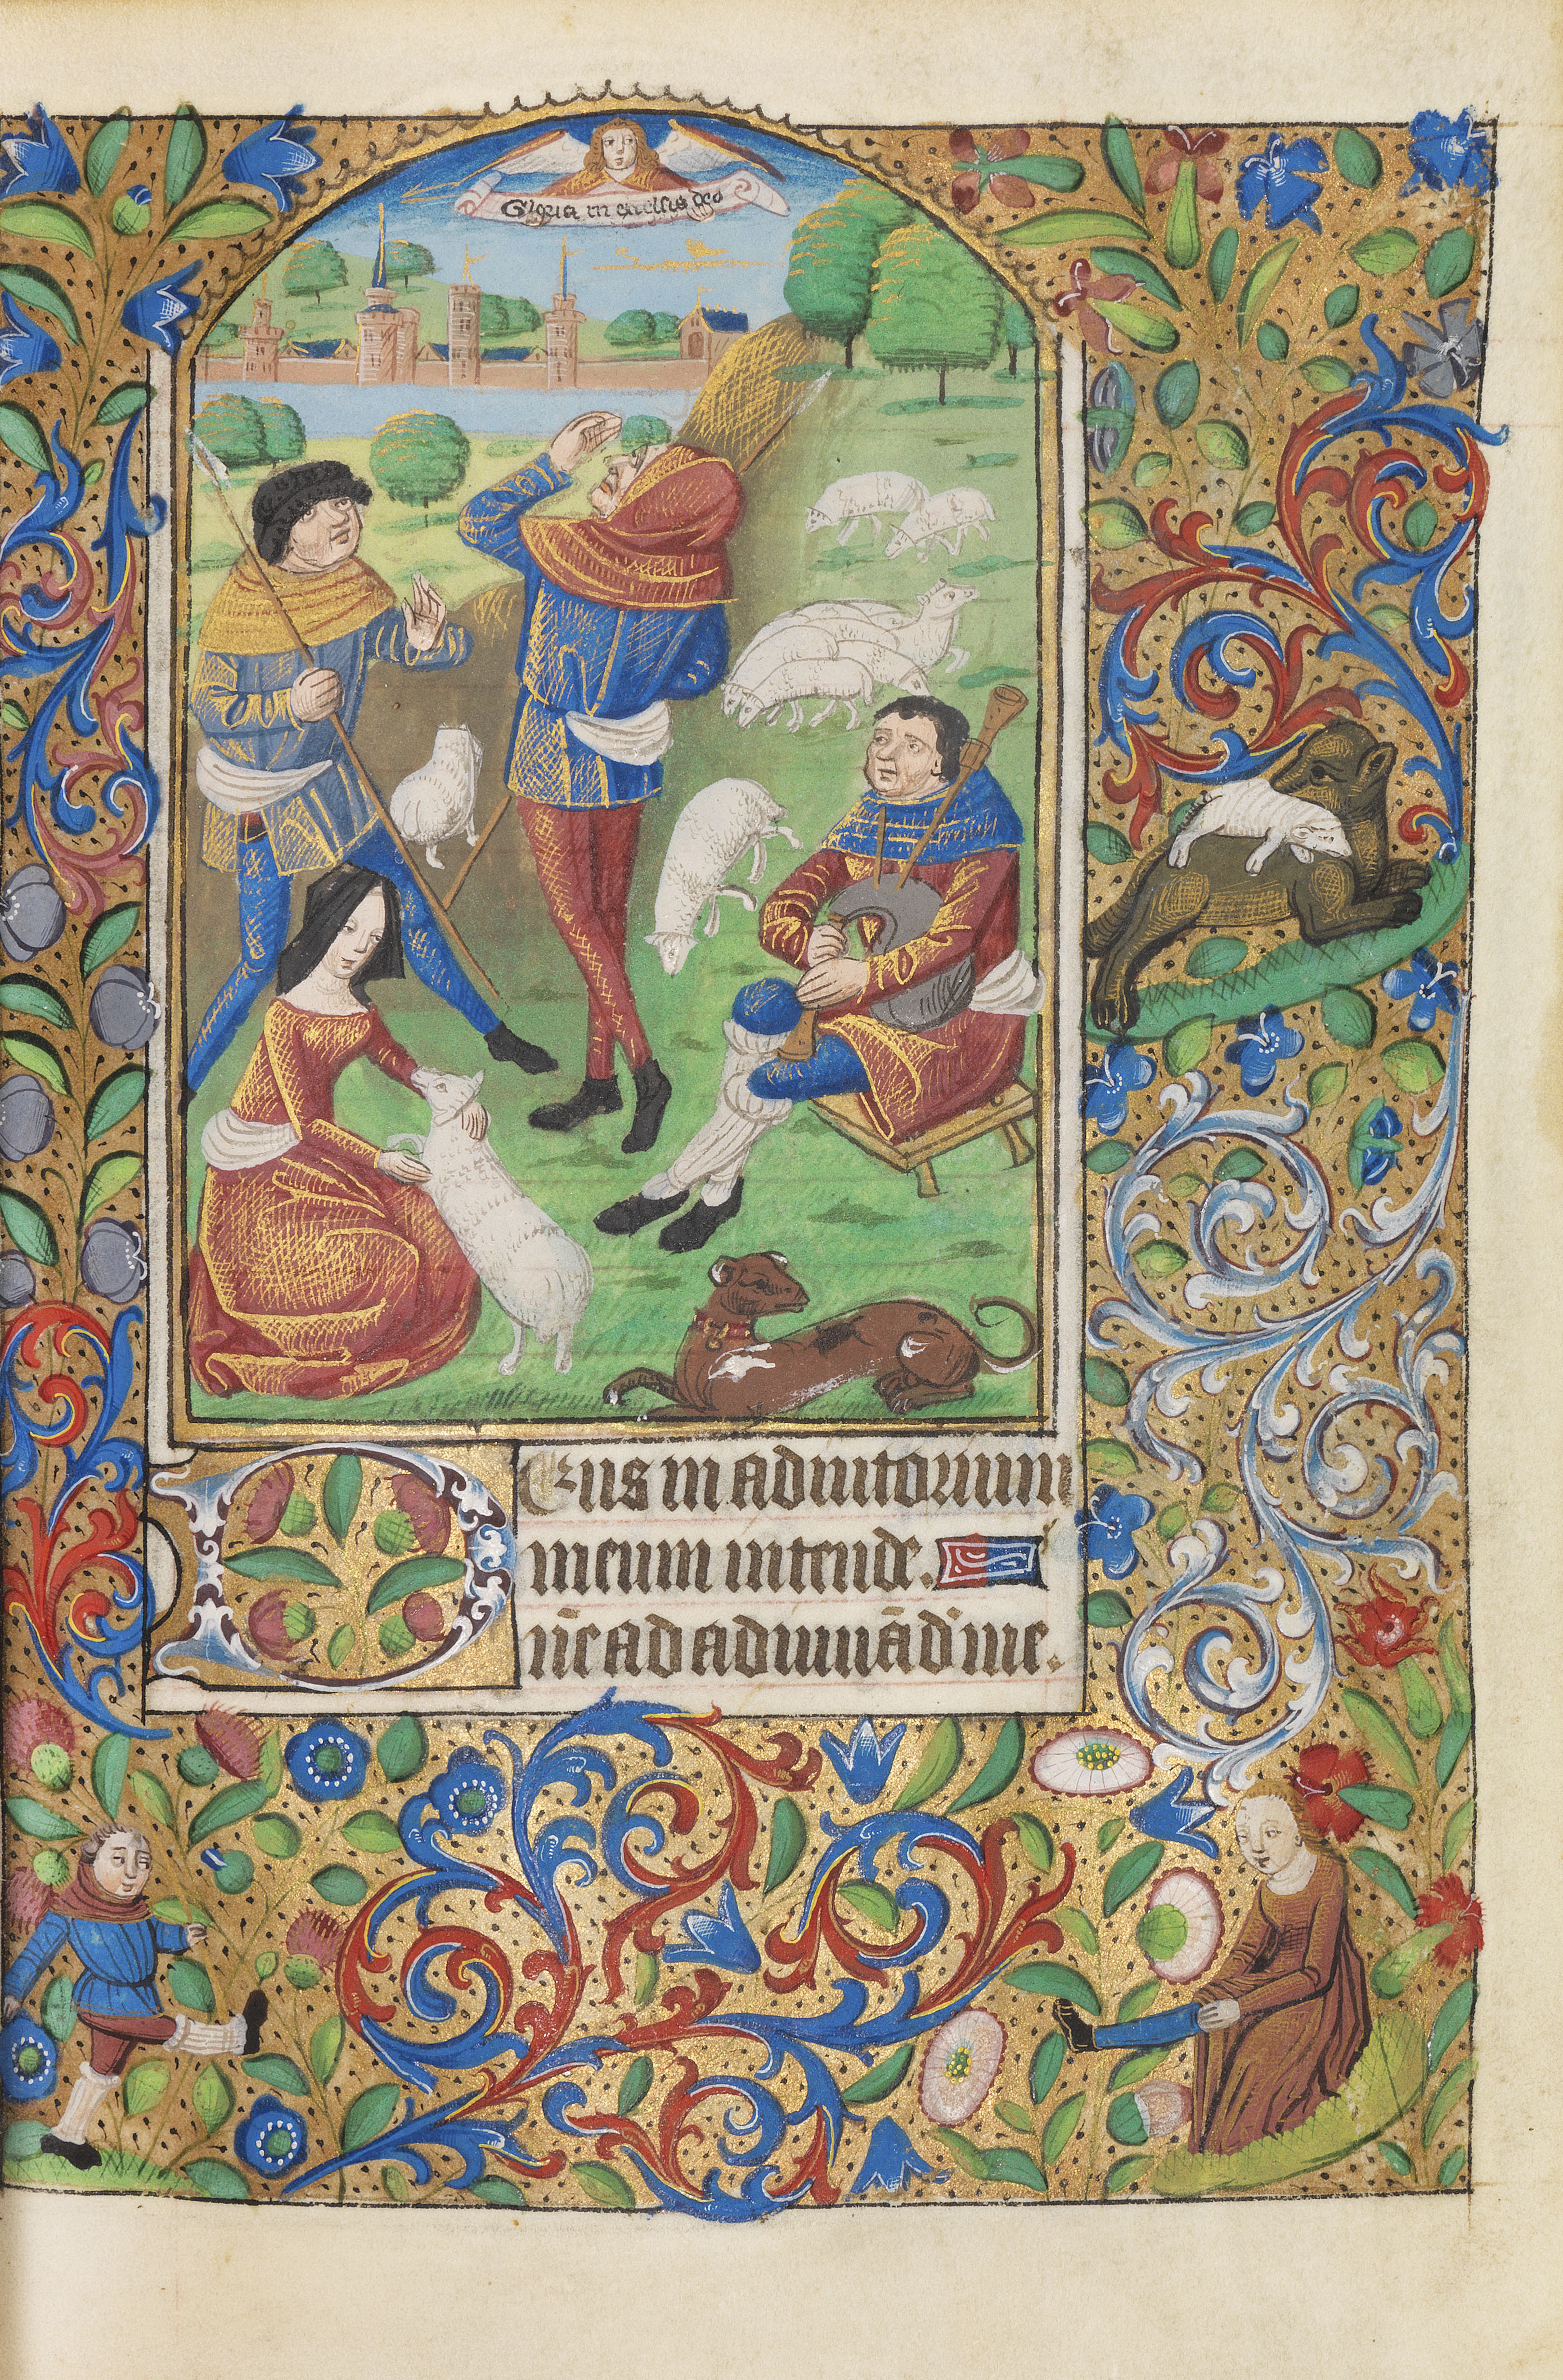 Gloria in excelsis deo
Deus in adiutorium
meum intende.
dn̄e ad adiuuādū me.